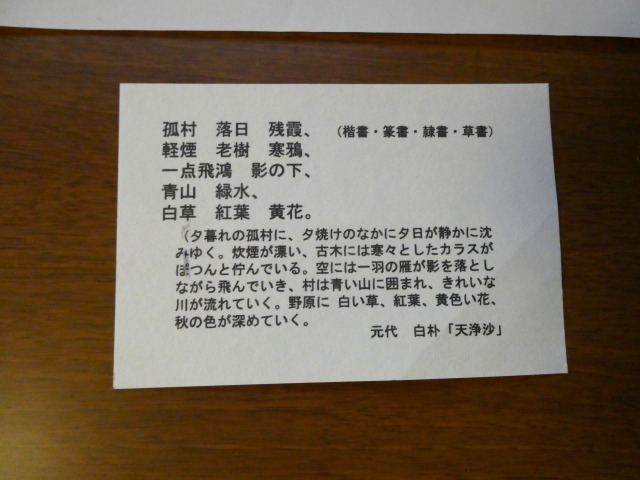 孤村　落日　残霞、　（楷書・篆書・隷書・草書）
軽煙　老樹　寒鴉、
一点飛鴻　影の下、
青山　緑水、
白草　紅葉　黄花。
（夕暮れの孤村に、夕焼けのなかに夕日が静かに沈
みゆく。炊煙が漂い、古木には寒々としたカラスが
ぽつんと佇んでいる。空には一羽の雁が影を落とし
ながら飛んでいき、村は青い山に囲まれ、きれいな
川が流れていく。野原に 白い草、紅葉、黄色い花、
秋の色が深めていく。
元代　白朴「天浄沙」